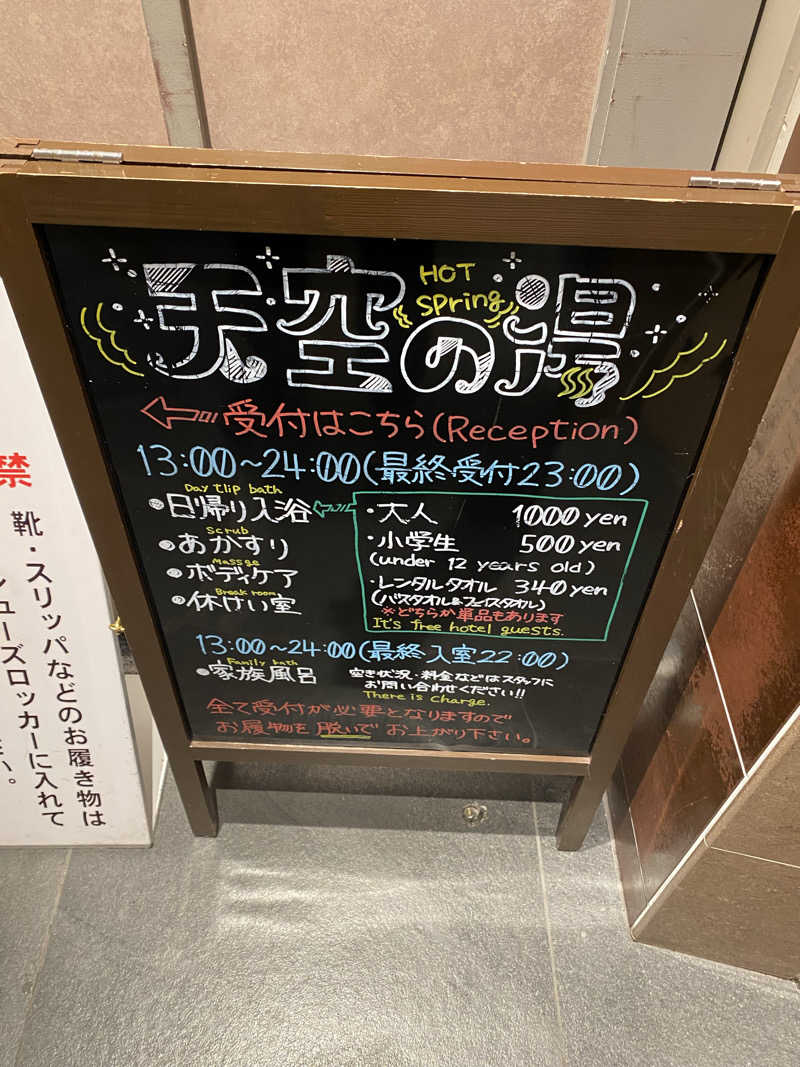 HOT
Spring
天空の湯
受付はこちら(Reception)
13:00~24:00(最終受付23:00)
Day tlip bath
・日帰り入浴
Scrub
・あかすり
Massge
・ボディケア
Break room
・休けい室
・大人 1000yen
・小学生 500yen
(under 12 years old)
・レンタルタオル 340yen
(バスタオル&フェイスタオル)
※どちらか単品もあります
It's free hotel guests.
13:00~24:00(最終入室22:00)
Family bath
・家族風呂
空き状況・料金などはスタッフに
お問い合わせください!!
There is charge.
全て受付が必要となりますので
お履物を脱いでお上がり下さい。
禁
靴・スリッパなどのお履き物は
ューズロッカーに入れて
い。